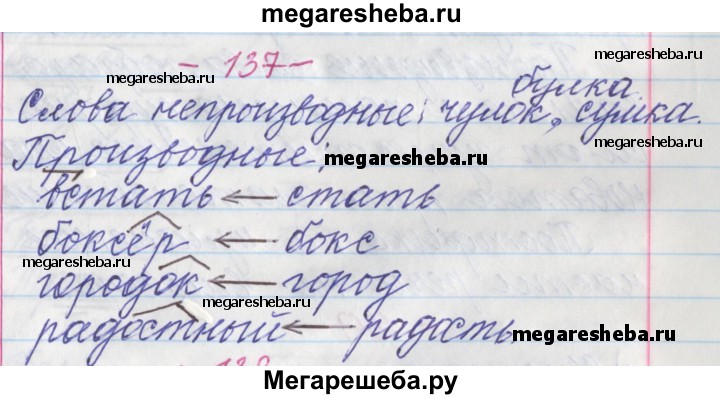 megaresheba.ru
- 137 -
megaresheba.ru
megaresheba.ru
булка
Слова непроизводные: чулок, сушка.
Производные: megaresheba.ru
встать ← стать
боксёр ← бокс
megaresheba.ru
городок ← город
megaresheba.ru
радостный ← радость
megaresheba.ru
Мегарешеба.ру